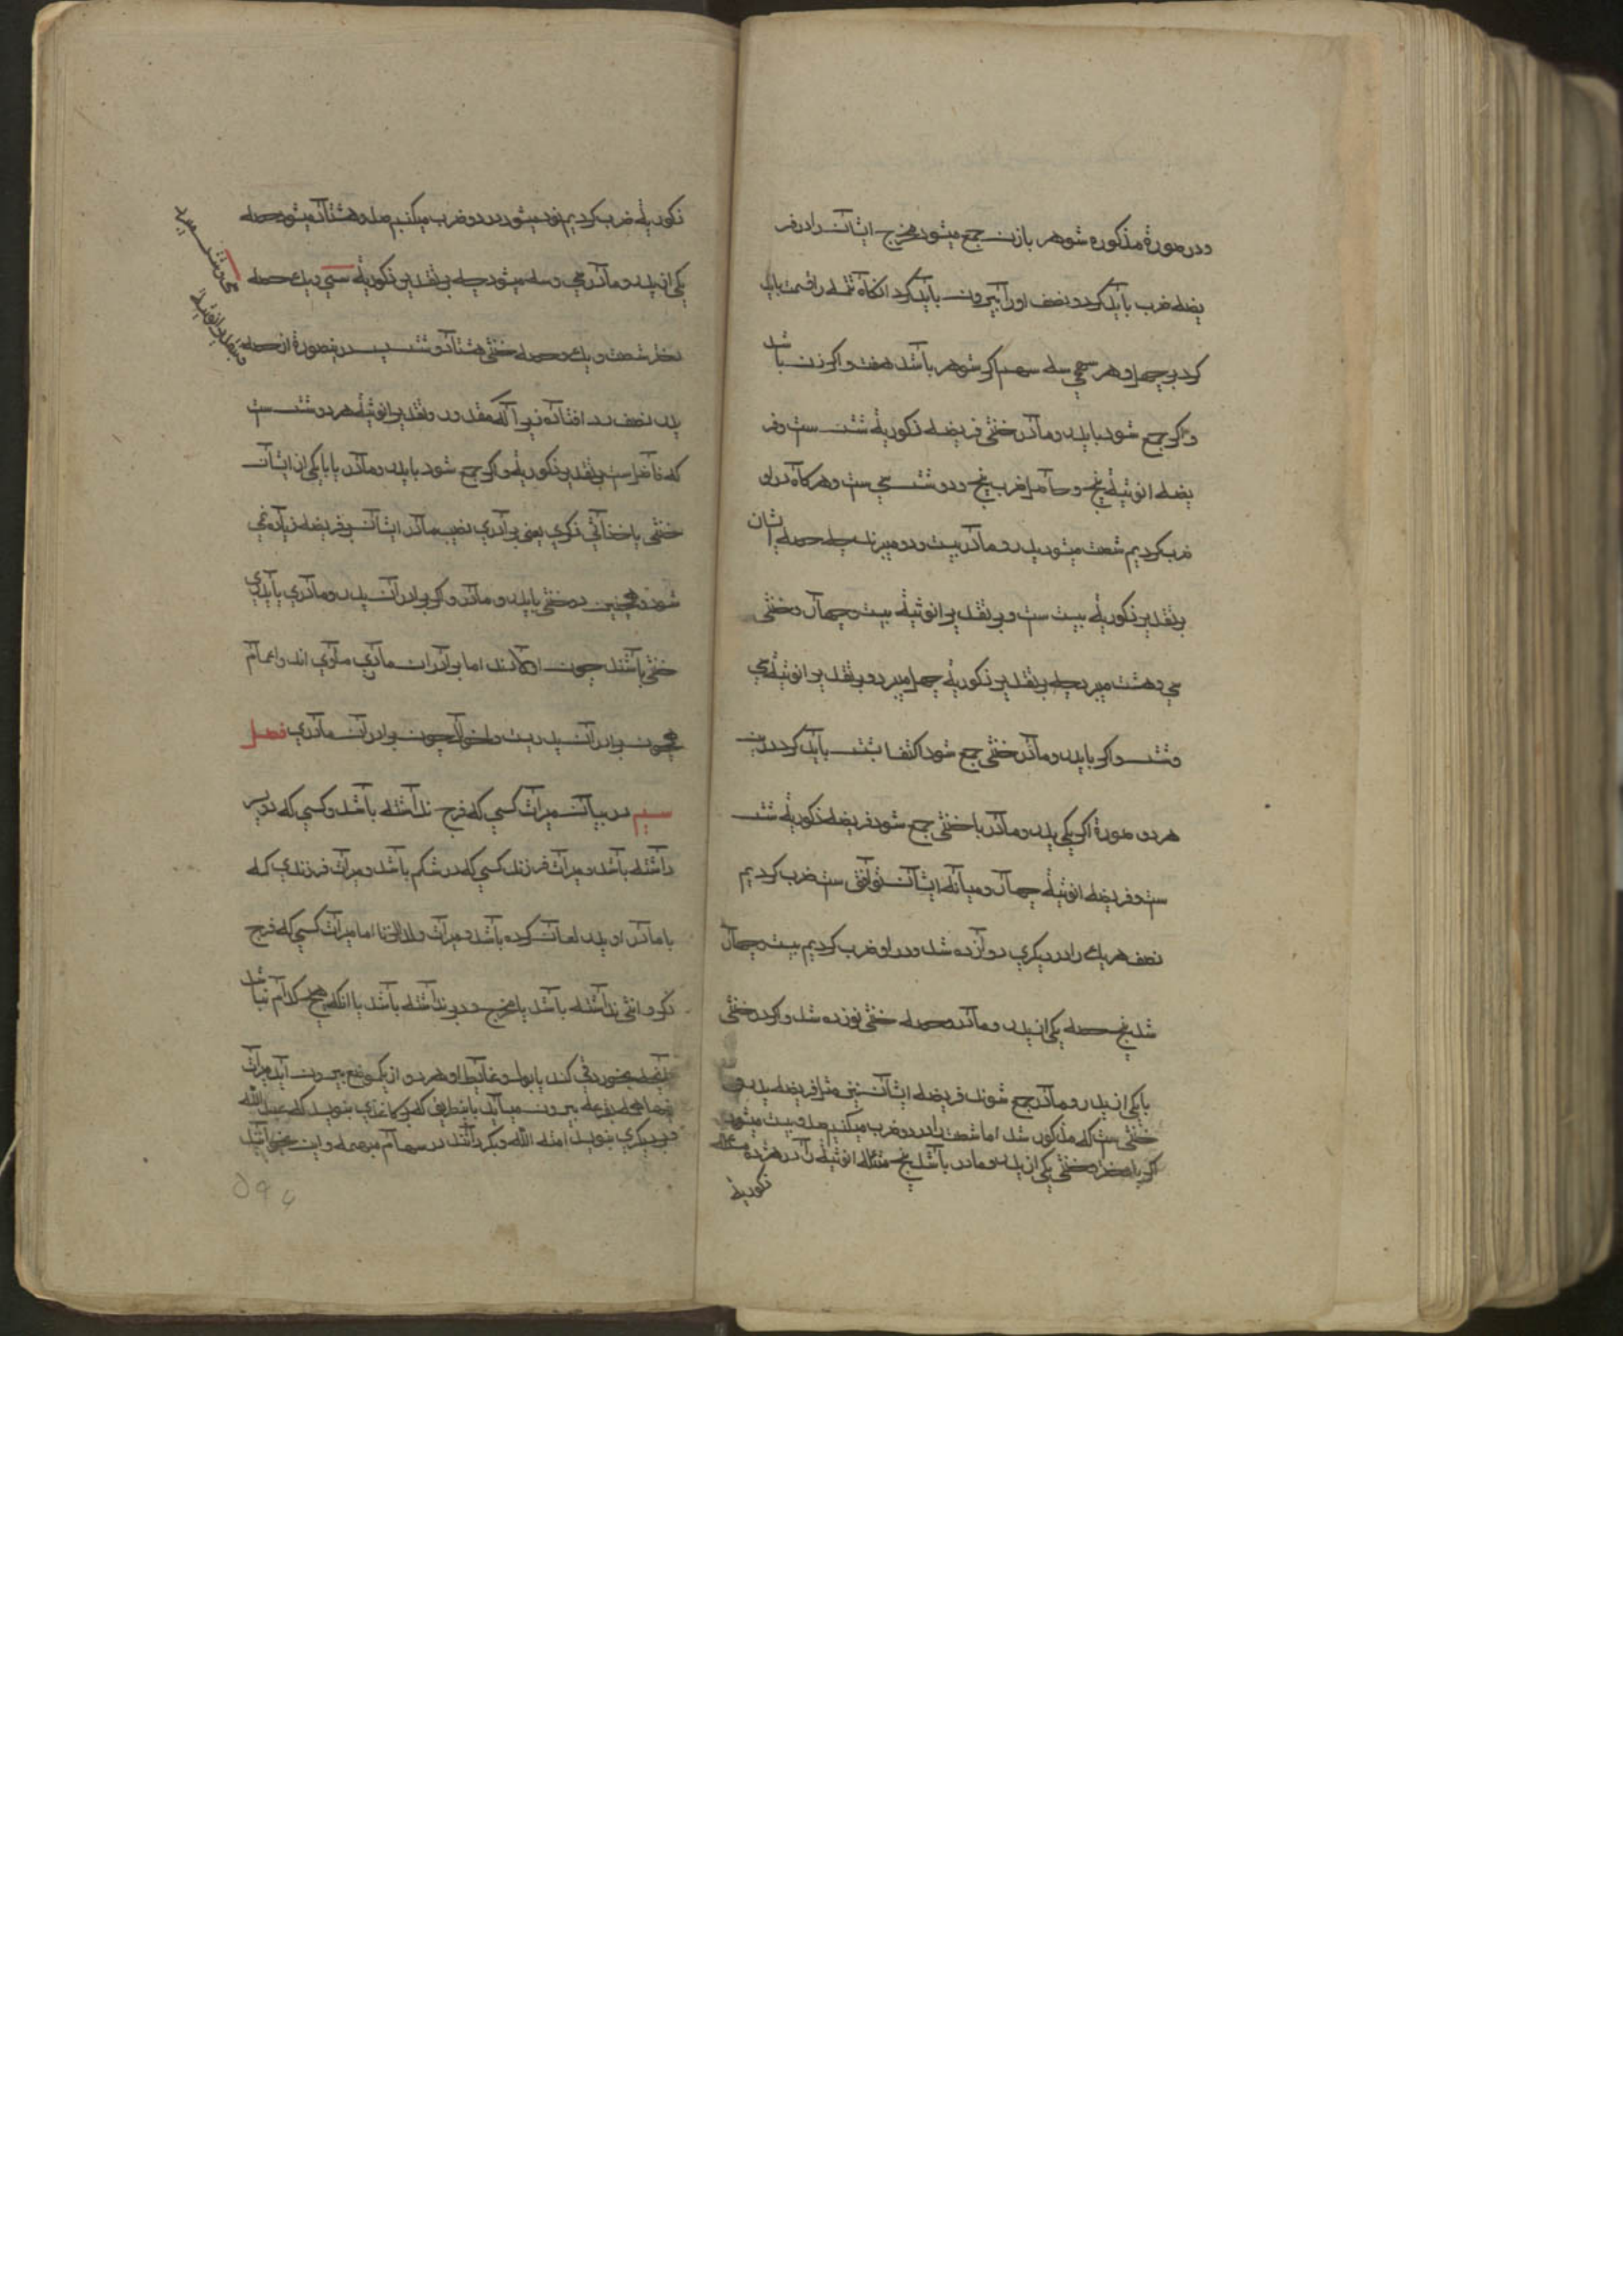 ودر صورة مذکوره شوهر بازن جمع میشود مخرج ایشان را در فر
یضه ضرب باید کرد و نصف اورا بیرون باید کرد انکاه تتمه را قسمت باید
کرد بر چهل و هر سهم اکر شوهر باشد هفت و اکر زن باشد
واکر جمع شود با پدر و مادر خنثی فریضه ذکوریة شش ست و فر
یضه انوثیة پنج و حاصل ضرب پنج و دو شش سی ست و هرکاه در او
ضرب کردیم شصت میشود پدر و مادر بیست و دو میبرند چه حصه ایشان
بر تقدیر ذکوریة بیست ست و بر تقدیر انوثیة بیست و چهار و خنثی
سی و هشت میبرد چه بر تقدیر ذکوریة چهل میبرد و بر تقدیر انوثیة سی
وشش واکر با پدر و مادر خنثی جمع شود اکتفا بشش باید کرد در
هر دو صورة اکر یکی پدر و مادر با خنثی جمع شود فریضه ذکوریة شش
ست و فریضه انوثیة چهار و میانه ایشان توافق ست ضرب کردیم
نصف هریک را در دیکری دوازده شد و در او ضرب کردیم بیست و چهار
شد پنج حصه یکی از پدر و مادر و حصه خنثی نوزده شد و اکر دو خنثی
با یکی از پدر و مادر جمع شوند فریضه ایشان نیز مثل فریضه پدر و
خنثی ست که مذکور شد اما شصت را در دو ضرب میکنیم صد و بیست میشود
اکر با دختر و خنثی یکی از پدر و مادر باشد پنج مسئله انوثیة را در هژده مسئله
ذکوریة
ذکوریة ضرب کردیم نود میشود در دو ضرب میکنیم صد و هشتاد میشود حصه
یکی از پدر و مادر سی و سه میشود چه بر تقدیر ذکوریة سی و یک حصه
دختر شصت و یک و حصه خنثی هشتاد و شش پس در صورة از حصه
پدر نصف رد افتاده زیرا که مقدور و تقدیر انوثیة هر دو شش ست
که فاضل ست بر تقدیر ذکوریة و اکر جمع شود با پدر و مادر یا با یکی از ایشان
خنثی یا خناثی ذکری یعنی برادری نصیب مادر ایشان بر فریضه زیاده نمی
شود و همچنین دو خنثی با پدر و مادر و اکر برادران پدر و مادری یا پدری
خنثی باشند چون اولادند اما برادران مادری مساوی اند و اعمام
همچون برادران پدریست و اخوال چون برادران مادری فصل
سیم در بیان میراث کسی که فرج نداشته باشد و کسی که دو سر
داشته باشد و میراث فرزند کسی که در شکم باشد و میراث فرزندی که
با مادر او پدر لعان کرده باشد و میراث ولد الزنا اما میراث کسی که فرج
ذکر و انثی نداشته باشد یا مخرج و دبر نداشته باشد یا انکه هیچ کدام نباشد
بخورد قی کند یا بول و غایط او هر دو از یک موضع بیرون آید میراث
بقرعه بیرون میآید باین طریق که بر کاغذی بنویسد که عبد الله
و بر دیکری بنویسد امة الله و بکرداند در سهام مبهمه و این
۵۹۵